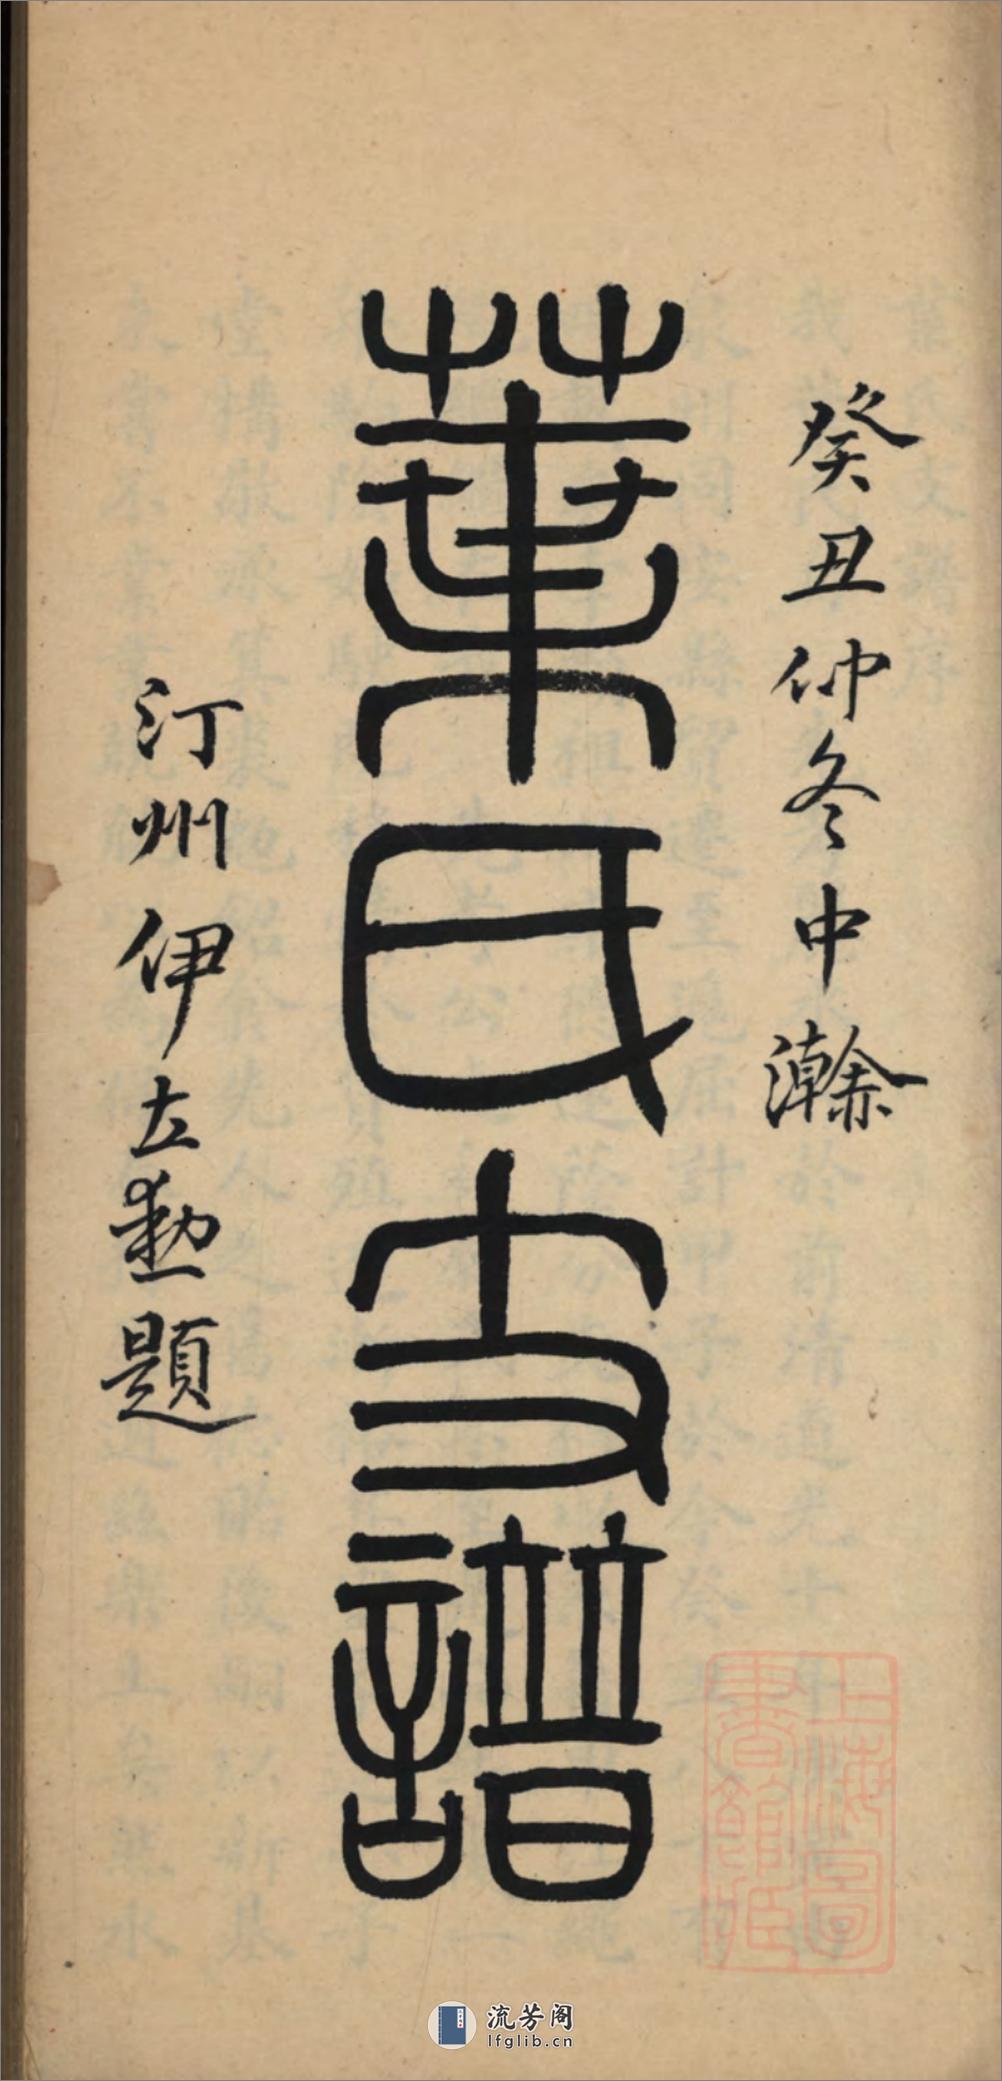 癸丑仲冬中澣
葉氏支譜
汀州伊立勲題
上海圖
書館藏
流芳阁
lfglib.cn